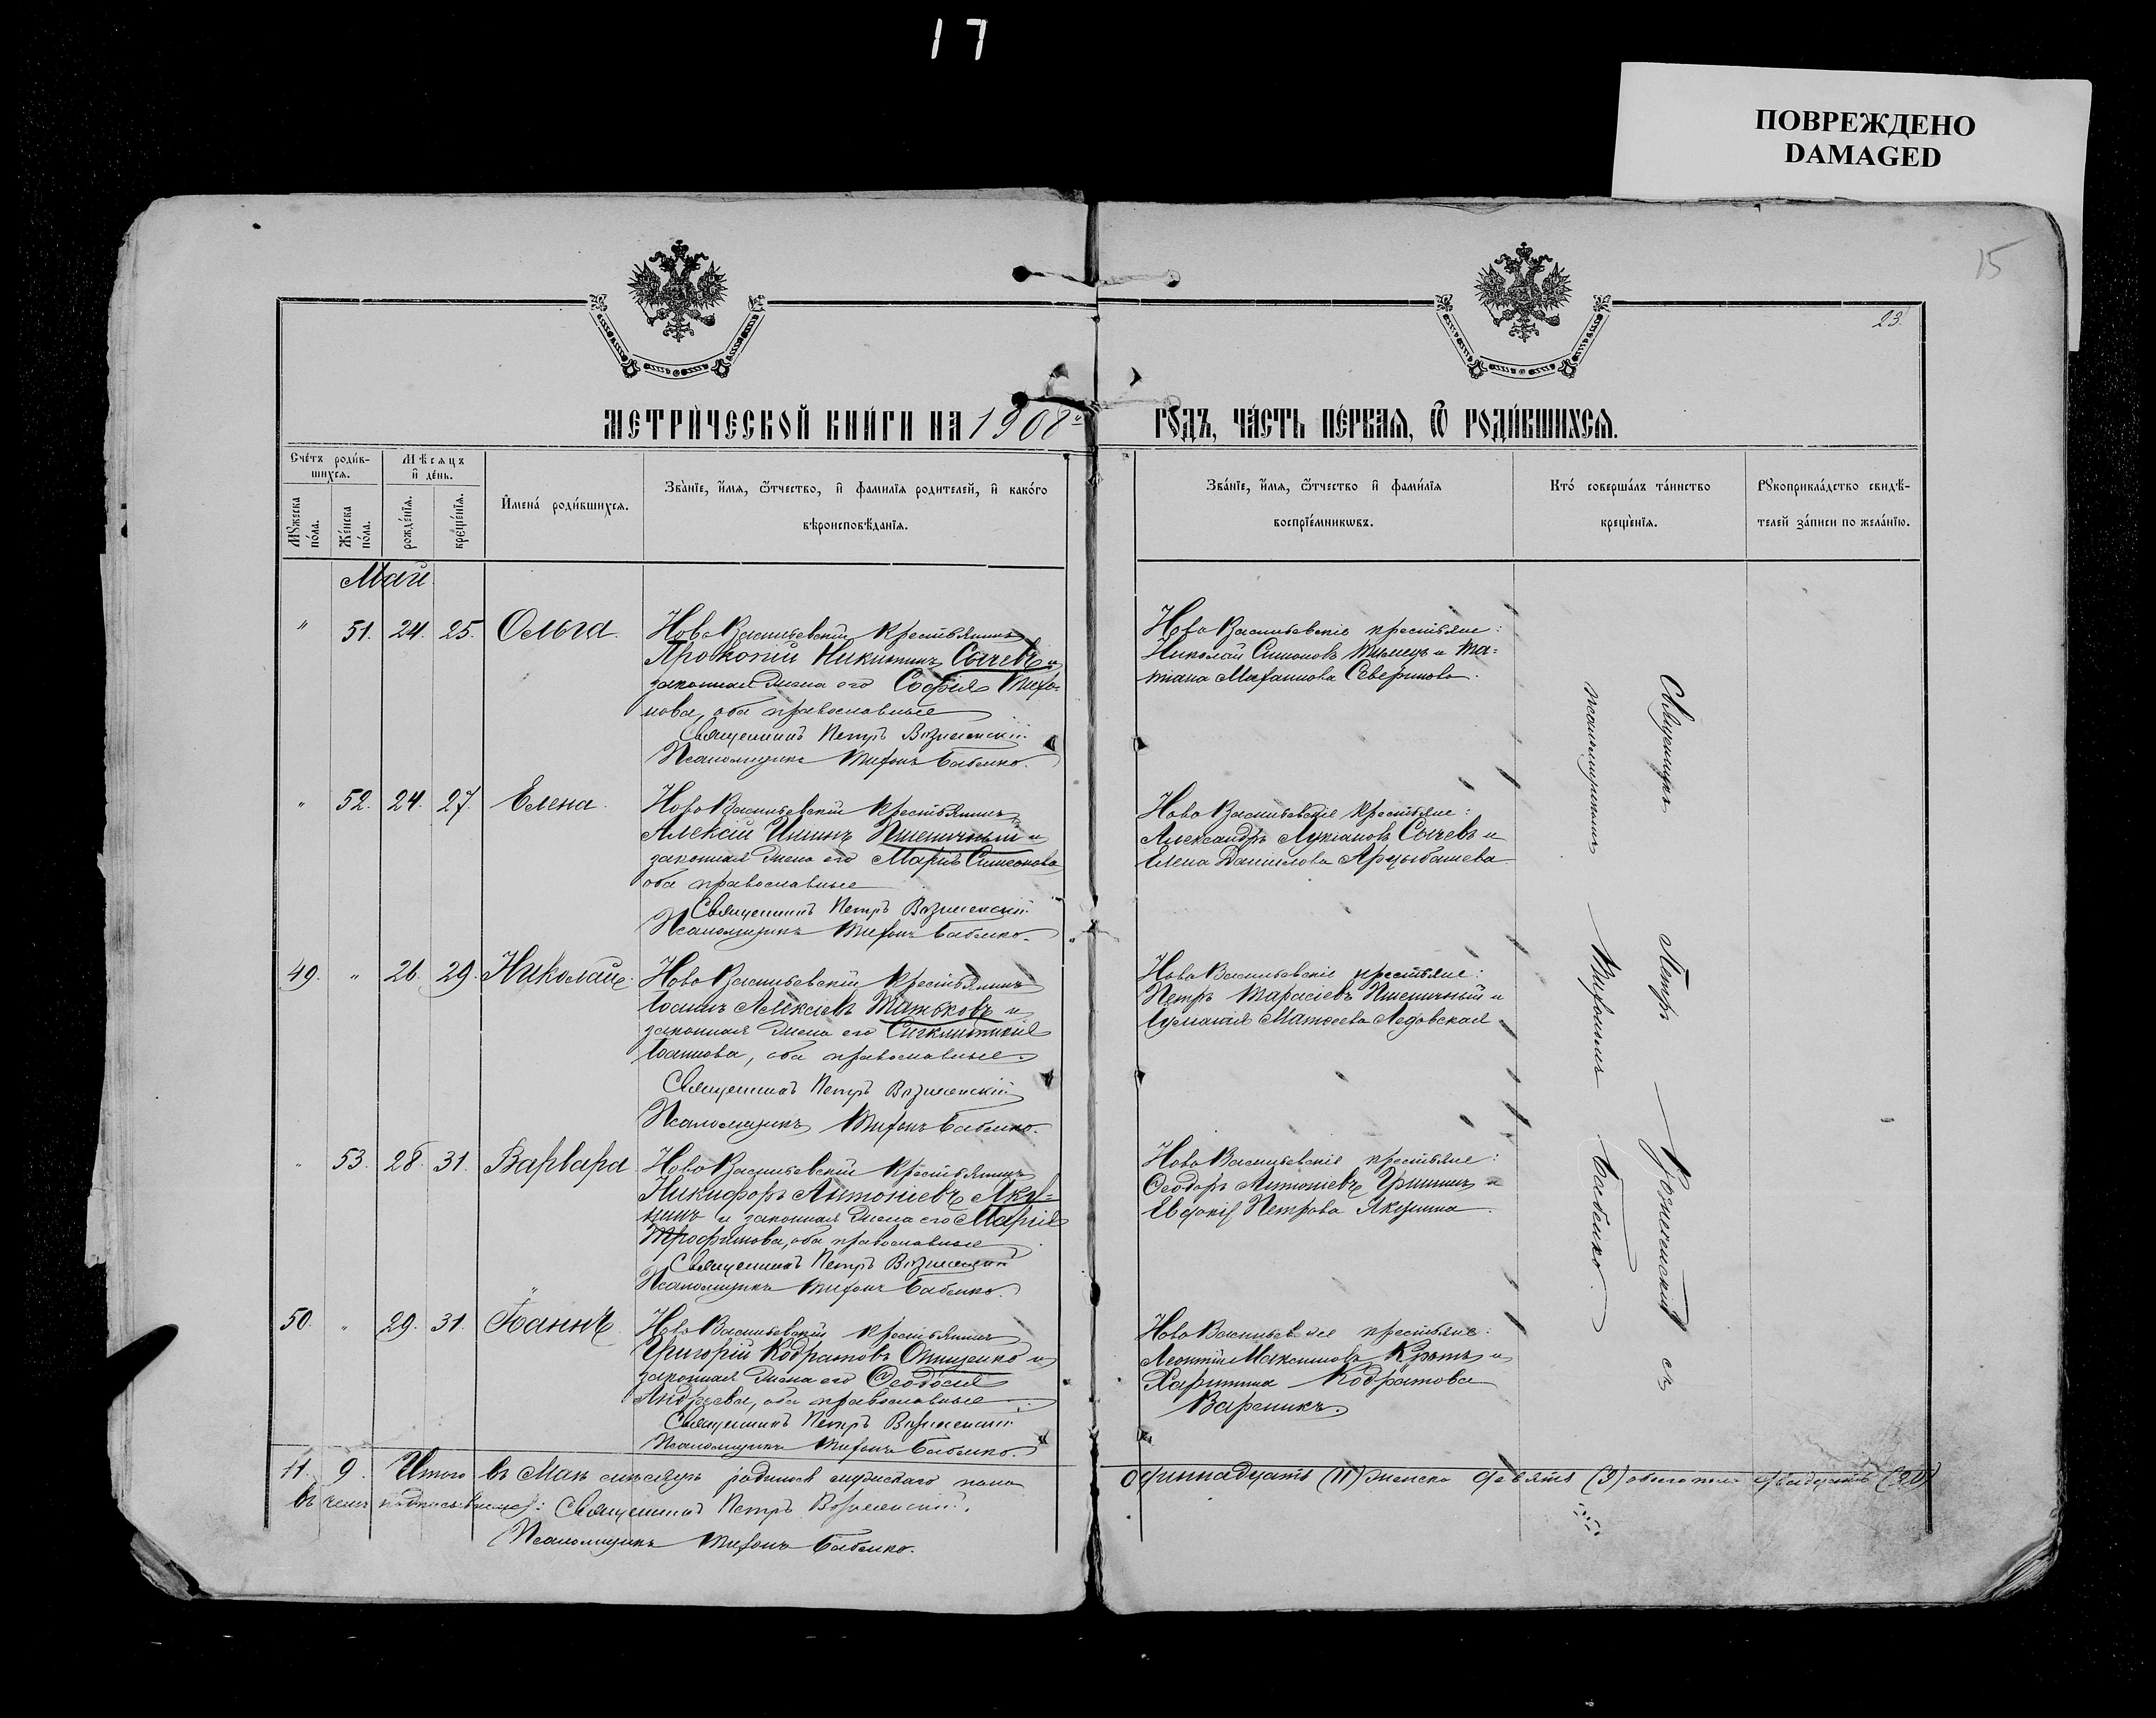 17
ПОВРЕЖДЕНО
DAMAGED
15
23.
МЕТРИ́ЧЕСКОЙ КНИ́ГИ НА 1908й
ГОДЪ, ЧА́СТЬ ПЕ́РВАЯ, Ѿ РОДИ́ВШИХСЯ.
Сче́тъ роди́в-
шихся.
Мѣсяцъ
и҆ де́нь.
Мꙋжеска по́ла.
Же́нска по́ла.
рожде́нїя.
креще́нїя.
И҆мена́ роди́вшихся.
Зва́нїе, и҆́мя, ѻ҆́тчество, и҆ фами́лїя родителей, и҆ како́го
вѣроисповѣ́данїя.
Зва́нїе, и҆́мя, ѻ҆́тчество и҆ фами́лїя
воспрїе́мникѡвъ.
Кто́ соверша́лъ та́инство
креще́нїя.
Рꙋкоприкла́дство свидѣ́-
телей за́писи по жела́нїю.
Май
" 51. 24. 25. Ольга.
НовоВасильевскій крестьянинъ
Прокопій Никитинъ Сычевъ и
законная жена его Софія Тихо-
нова, оба православные
Священникъ Петръ Вознесенскій
Псаломщикъ Тихонъ Бабенко.
НовоВасильевскіе крестьяне:
Николай Симоновъ и Та-
тіана Северинова.
" 52. 24. 27. Елена.
НовоВасильевскій крестьянинъ
Алексій Ильинъ Пшеничный и
законная жена его Марія Симеонова
оба православные
Священникъ Петръ Вознесенскій
Псаломщикъ Тихонъ Бабенко.
НовоВасильевскіе крестьяне:
Александръ Лукіановъ Сычевъ и
Елена Даніилова Арцыбашева
49. " 26. 29. Николай.
НовоВасильевскій крестьянинъ
Іоаннъ Алексіевъ Татьковъ и
законная жена его Сигклитикія
Іоаннова, оба православные.
Священникъ Петръ Вознесенскій
Псаломщикъ Тихонъ Бабенко.
НовоВасильевскіе крестьяне:
Петръ Тарасіевъ Пшеничный и
Іуліанія Матѳеева Ледовская.
" 53. 28. 31. Варвара
НовоВасильевскій крестьянинъ
Никифоръ Антоніевъ Яку-
нинъ и законная жена его Марія
Трофимова, оба православные
Священникъ Петръ Вознесенскій
Псаломщикъ Тихонъ Бабенко.
НовоВасильевскіе крестьяне:
Ѳеодоръ Антоніевъ Гришинъ и
Евдокія Петрова Якунина.
50. " 29. 31. Іоаннъ.
НовоВасильевскій крестьянинъ
Григорій Кодратовъ Онищенко и
законная жена его Ѳеодосія
Андреева, оба православные
Священникъ Петръ Вознесенскій
Псаломщикъ Тихонъ Бабенко.
НовоВасильевскіе крестьяне:
Леонтій Максимовъ Кротъ и
Харитина Кодратова
Вареникъ.
Священникъ Петръ Вознесенскій съ
псаломщикомъ Тихономъ Бабенко.
11. 9. Итого въ Маѣ мѣсяцѣ родилося мужскаго пола
одиннадцать (11) женска девять (9) обоего пола двадцать (20)
въ чемъ подписываемся: Священникъ Петръ Вознесенскій.
Псаломщикъ Тихонъ Бабенко.